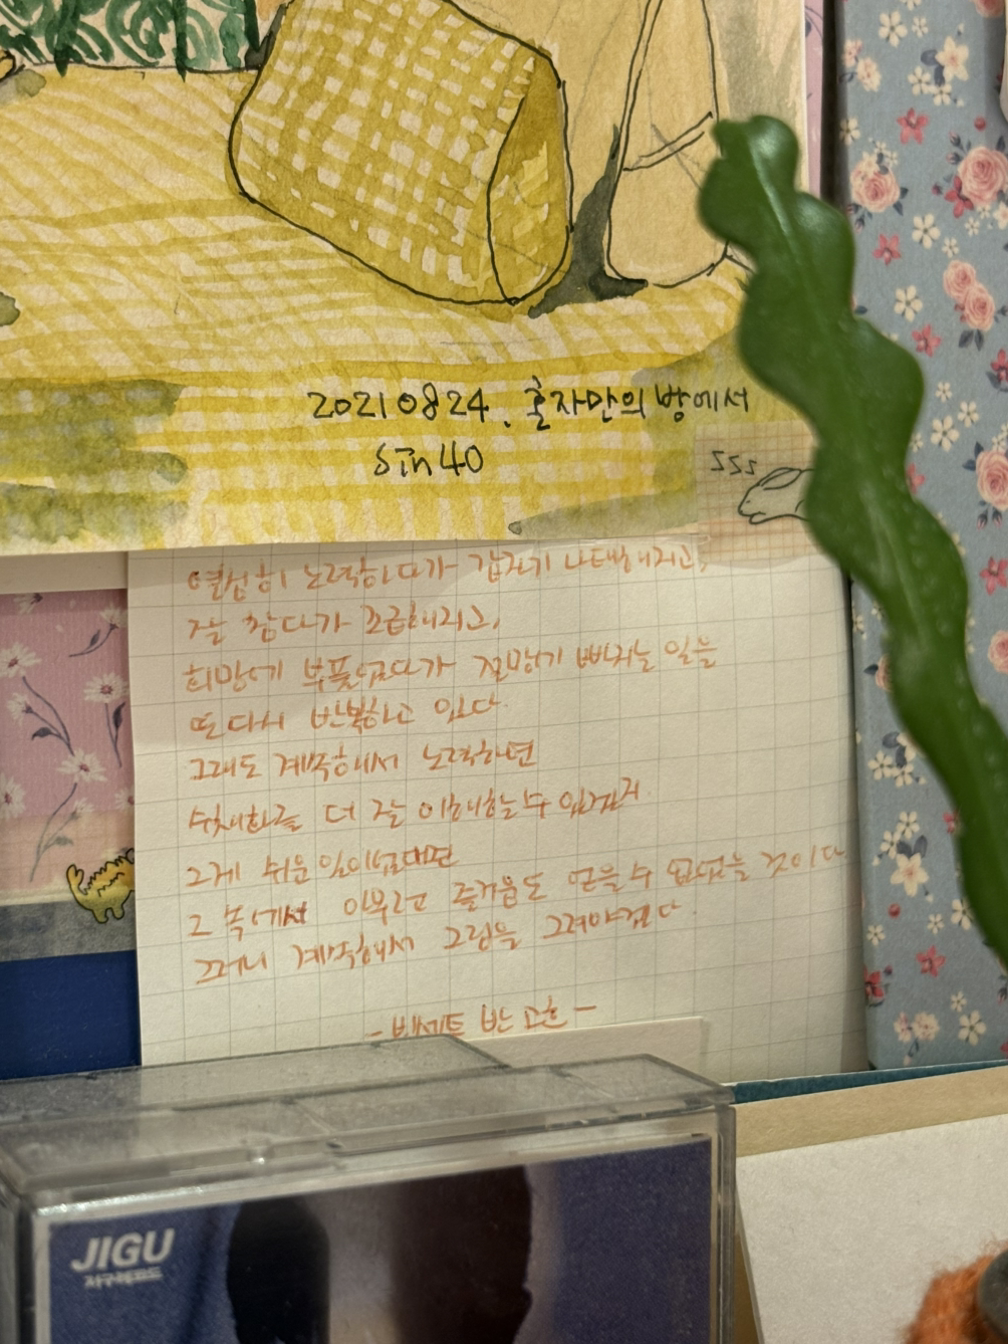 20210824. 혼자만의 방에서
sin40
sss
열심히 노력하다가 갑자기 나태해지고,
잘 참다가 조급해지고,
희망에 부풀었다가 절망에 빠지는 일을
또 다시 반복하고 있다.
그래도 계속해서 노력하면
수채화를 더 잘 이해할 수 있겠지.
그게 쉬운 일이었다면
그 속에서 아무런 즐거움도 얻을 수 없었을 것이다.
그러니 계속해서 그림을 그려야겠다.
- 빈센트 반 고흐 -
JIGU
지구레코드